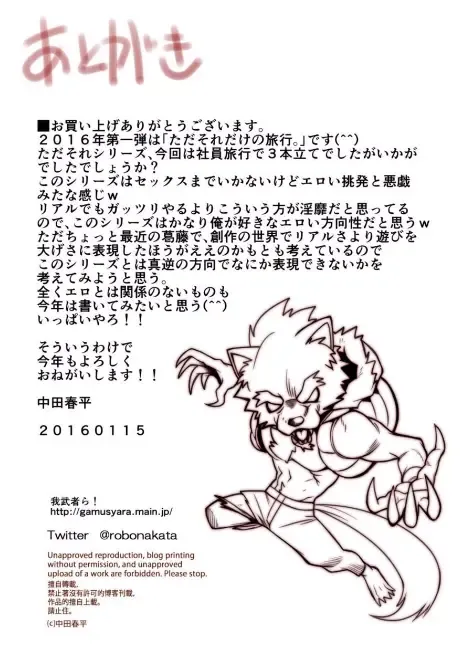 あとがき
■お買い上げありがとうございます。
２０１６年第一弾は「ただそれだけの旅行。」です(^^)
ただそれシリーズ、今回は社員旅行で３本立てでしたがいかが
でしたでしょうか？
このシリーズはセックスまでいかないけどエロい挑発と悪戯
みたな感じｗ
リアルでもガッツリやるよりこういう方が淫靡だと思ってる
ので、このシリーズはかなり俺が好きなエロい方向性だと思うｗ
ただちょっと最近の葛藤で、創作の世界でリアルさより遊びを
大げさに表現したほうがええのかもとも考えているので
このシリーズとは真逆の方向でなにか表現できないかを
考えてみようと思う。
全くエロとは関係のないものも
今年は書いてみたいと思う(^^)
いっぱいやろ！！
そういうわけで
今年もよろしく
おねがいします！！
中田春平
２０１６０１１５
我武者ら！
http://gamusyara.main.jp/
Twitter @robonakata
Unapproved reproduction, blog printing
without permission, and unapproved
upload of a work are forbidden. Please stop.
擅自轉載,
禁止著沒有許可的博客刊載,
作品的擅自上載。
請止住。
(c)中田春平